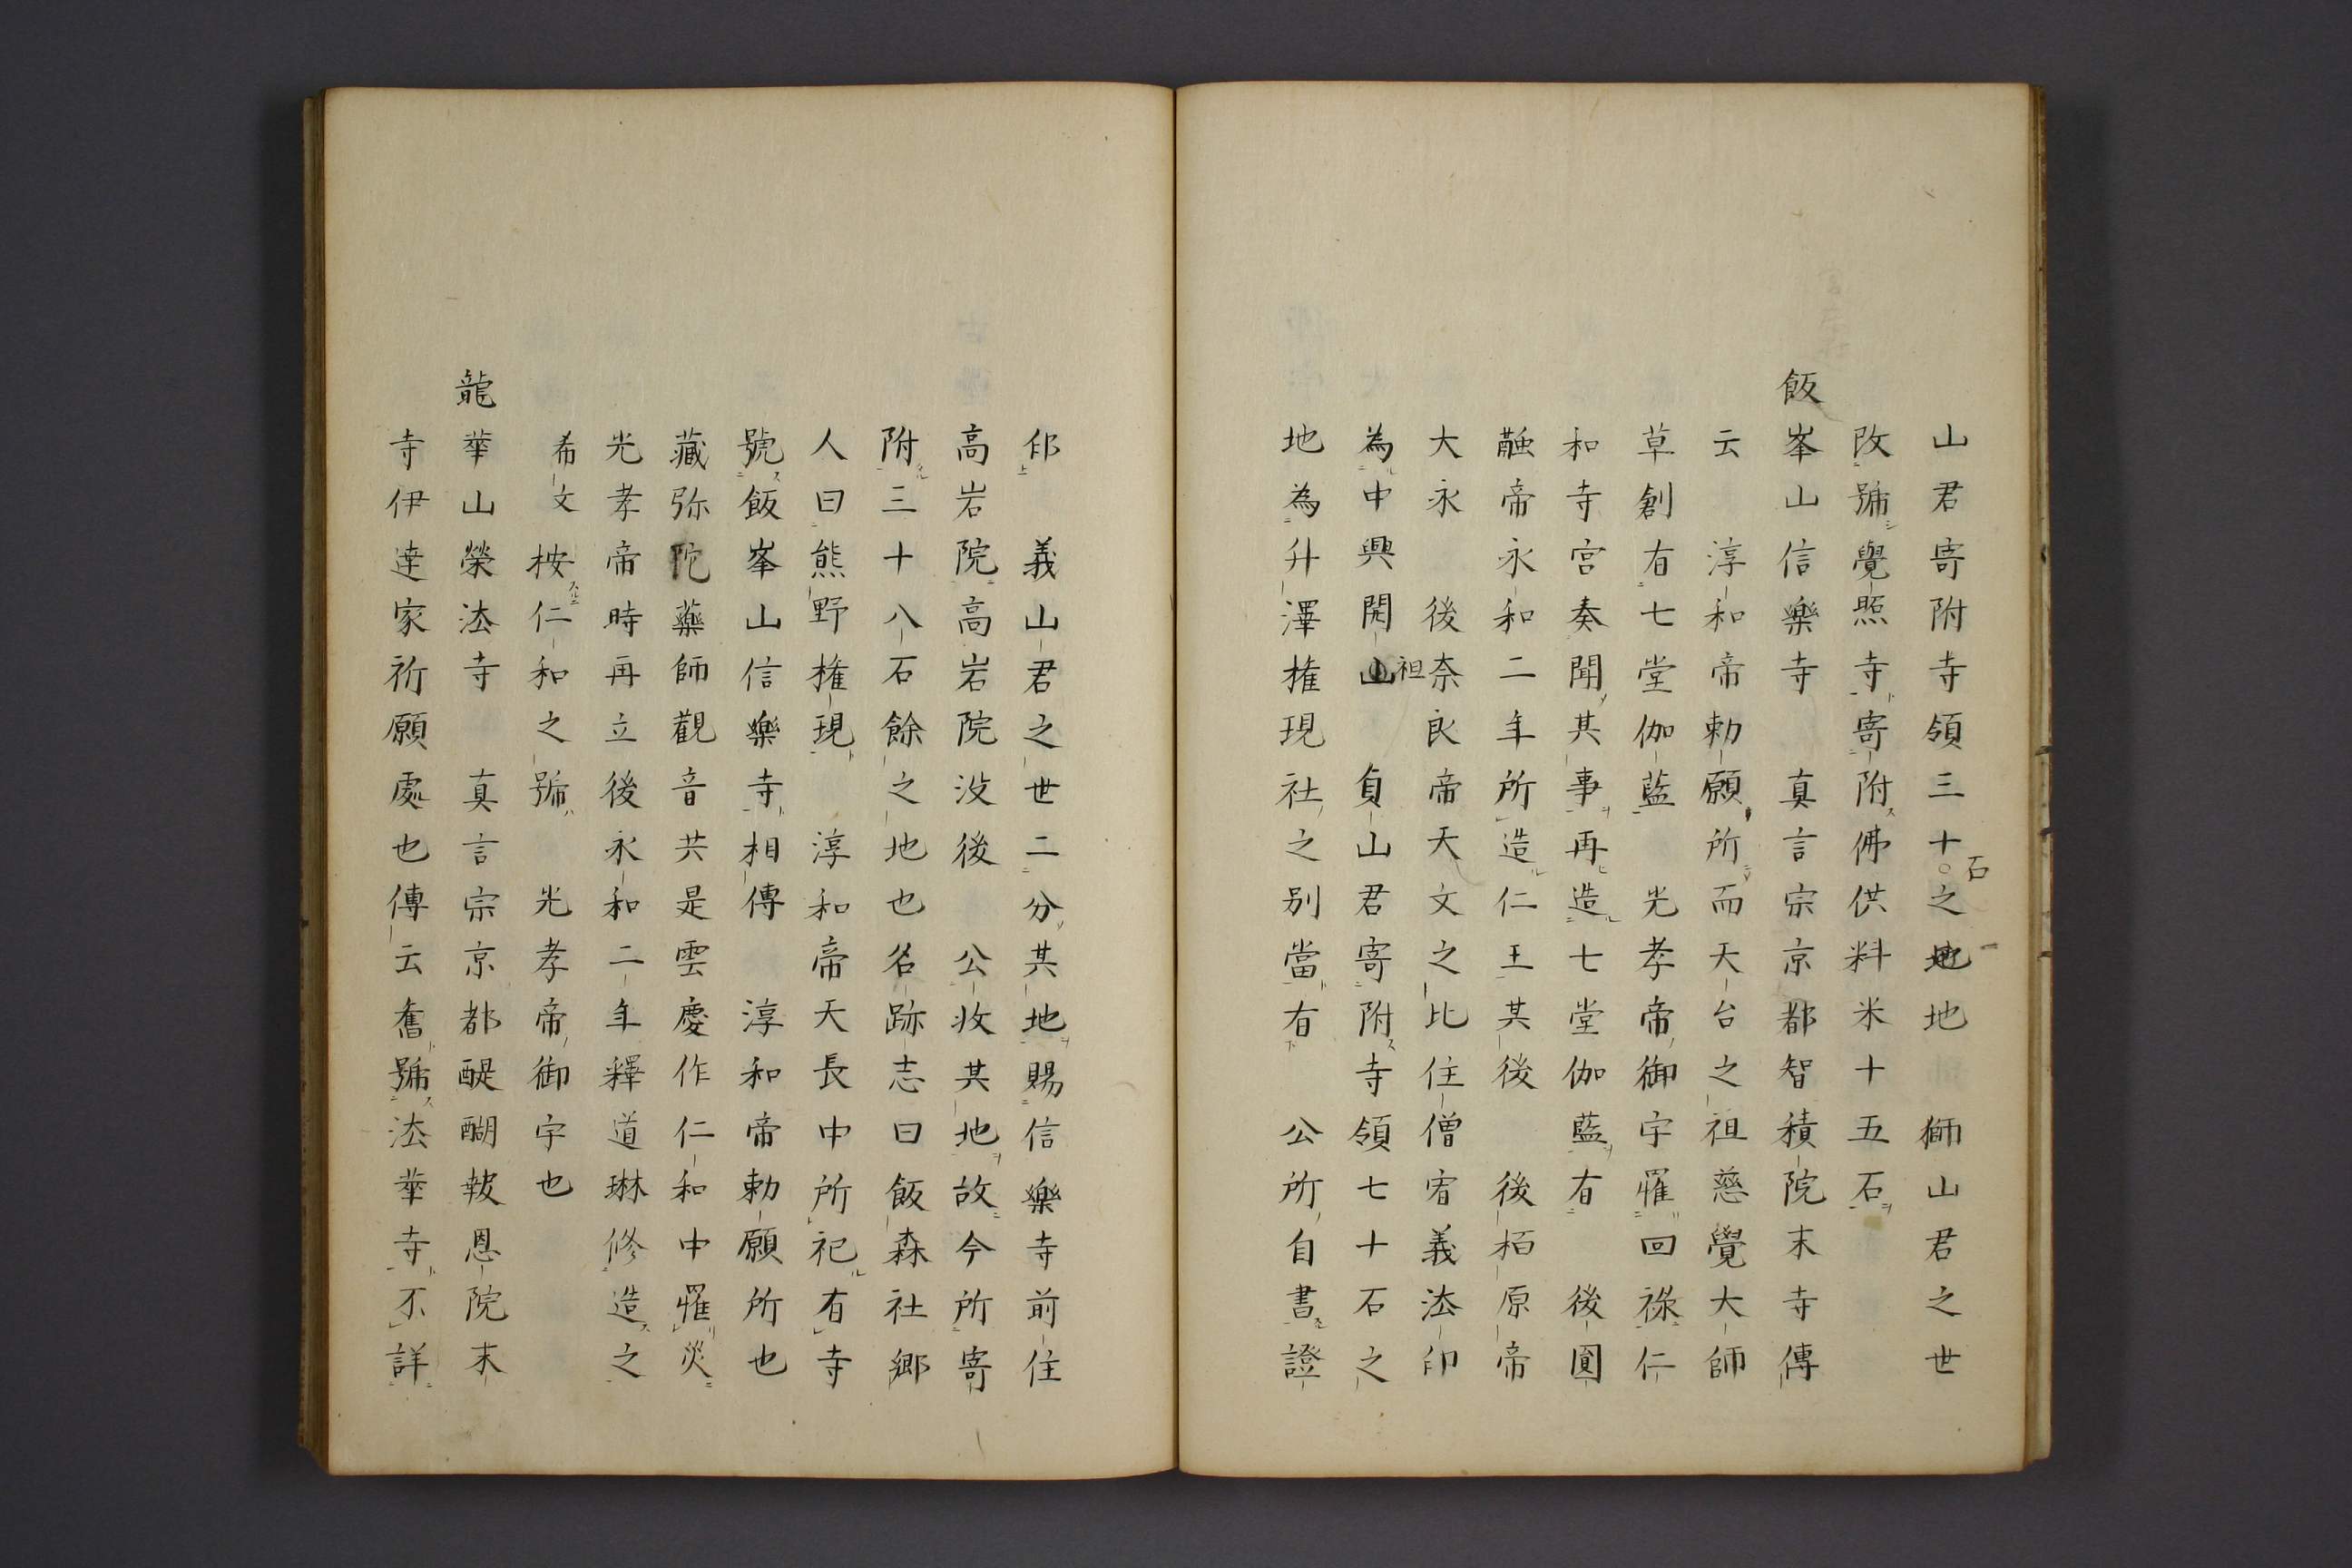 山君寄附寺領三十石之地地　獅山君之世
改號覺照寺寄附佛供料米十五石
飯峯山信樂寺　真言宗京都智積院末寺傳
云　淳和帝勅願所而天台之祖慈覺大師
草創有七堂伽藍　光孝帝御宇罹回祿仁
和寺宮奏聞其事再造七堂伽藍有　後圓
融帝永和二年所造仁王其後　後栢原帝
大永　後奈良帝天文之比住僧宥義法印
為中興開山祖　貞山君寄附寺領七十石之
地為升澤権現社之別當有　公所自書證
印　義山君之世二分其地賜信樂寺前住
高岩院高岩院没後　公收其地故今所寄
附三十八石餘之地也名跡志曰飯森社郷
人曰熊野権現　淳和帝天長中所祀有寺
號飯峯山信樂寺相傳　淳和帝勅願所也
藏弥陀藥師觀音共是雲慶作仁和中罹災
光孝帝時再立後永和二年釋道琳修造之
希文桉仁和之號　光孝帝御宇也
龍華山榮法寺　真言宗京都醍醐報恩院末
寺伊達家祈願處也傳云舊號法華寺不詳